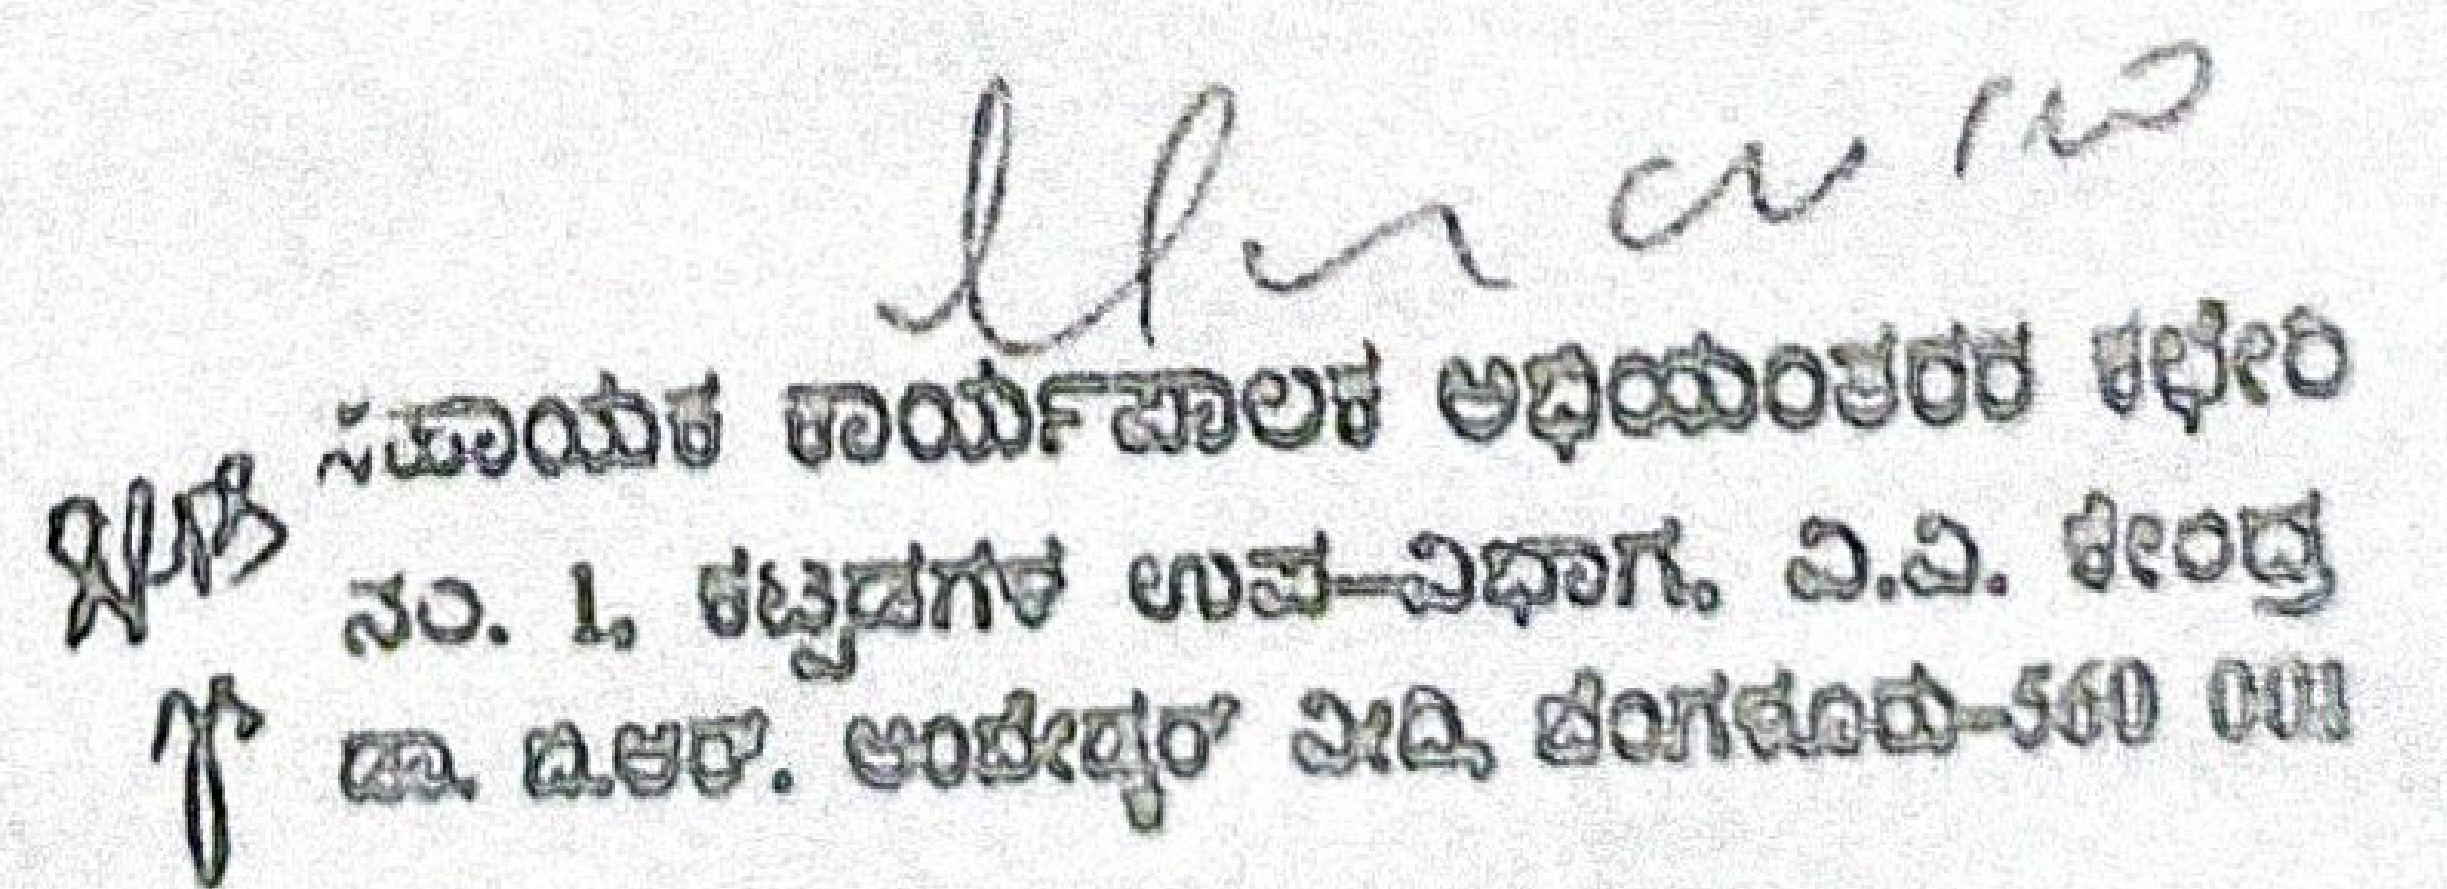 ಸಹಾಯಕ ಕಾರ್ಯಪಾಲಕ ಅಭಿಯಂತರರ ಕಛೇರಿ
ನಂ. 1, ಕಟ್ಟಡಗಳ ಉಪ-ವಿಭಾಗ, ವಿ.ವಿ. ಕೇಂದ್ರ
ಡಾ. ಬಿ.ಆರ್. ಅಂಬೇಡ್ಕರ್ ವೀದಿ, ಬೆಂಗಳೂರು-560 001